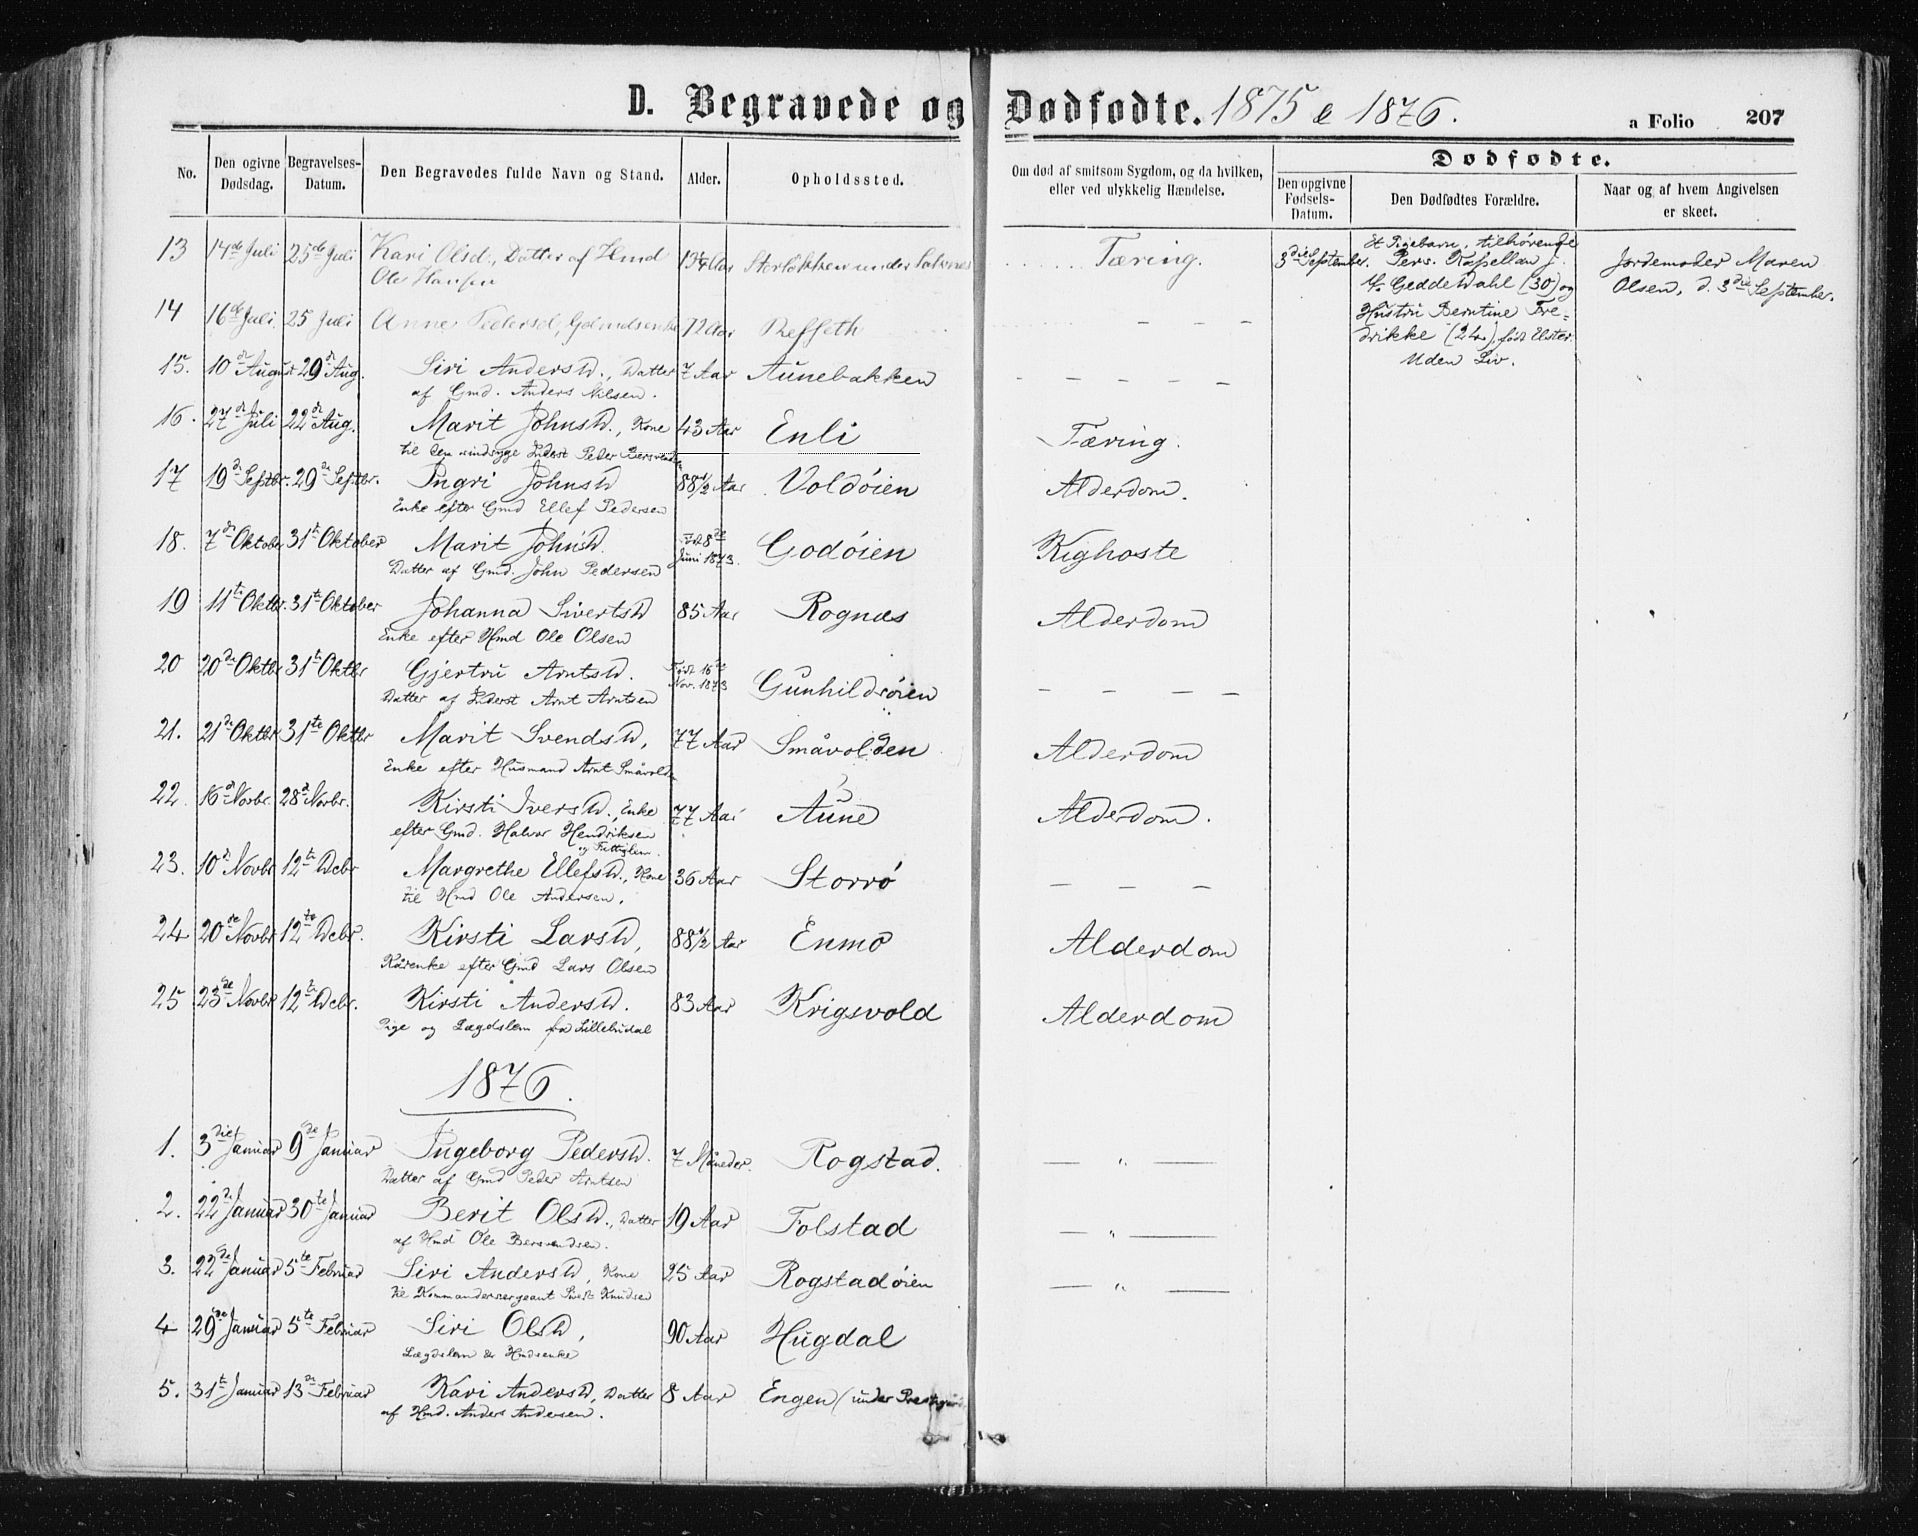 D. Begravede og Dødfødte. 1875 & 1876.
a Folio 207
No. Den ogivne Dødsdag. Begravelses-Datum. Den Begravedes fulde Navn og Stand. Alder. Opholdssted. Om død af smitsom Sygdom, og da hvilken, eller ved ulykkelig Hændelse. Dødfødte.
Den opgivne Fødsels-Datum. Den Dødfødtes Forældre. Naar og af hvem Angivelsen er skeet.
13 14de Juli 25de Juli Kari Olsd., Datter af Hmd Aar under Tæring.
Ole Hansen
3die September. Et Pigebarn, tilhørende
Pers. Kapellan J.
Geddewahl (30) og
Hustru Berntine Fre=
drikke (24), født Elster.
Uden Liv.
Jordemoder Maren
Olsen, d. 3die September.
14 16de Juli 25 Juli Anne Pedersd, 72 Aar Refseth — — —
15. 10de August 29de Aug. Siri Andersd., Datter 7 Aar Aunebakken — — — — —
af Gmd. Anders Nilsen.
16. 27de Juli 22de Aug. Marit Johnsd., Kone 43 Aar Enli Tæring.
til den sindsyge Inderst Peder
17 19de Septbr. 29de Septbr. Ingri Johnsd 88 1/2 Aar Voldøien Alderdom.
Enke efter Gmd Ellef Pedersen
18. 7de Oktober 31te Oktober Marit Johnsd. Født 8de Juni 1873. Godøien Kighoste
Datter af Gmd. John Pedersen
19 11te Oktbr. 31te Oktober Johanna Sivertsd 85 Aar Rognæs Alderdom
Enke efter Hmd Ole Olsen
20 20de Oktbr 31te Oktbr Gjertru Arntsd. Født 16de Nov. 1873 Gunhildrøien — — — —
Datter af Inderst Arnt Arntsen
21. 21de Oktbr 31te Oktbr Marit Svendsd, 77 Aar Småvolden Alderdom
Enke efter Husmand Arnt Småvolden
22. 16de Novbr. 28de Novbr. Kirsti Iversd., Enke 77 Aar Aune Alderdom.
efter Gmd. Halvor Hendriksen
og Fattiglem.
23. 10de Novbr 12te Debr Margrethe Ellefsd., Kone 36 Aar Storrø — — — —
til Hmd Ole Andersen.
24 20de Novbr 12te Debr. Kirsti Larsd, 88 1/2 Aar Enmo Alderdom
Kårenke efter Gmd Lars Olsen
25 23de Novbr 12te Debr. Kirsti Andersd. 83 Aar Krigsvold Alderdom
Pige og Lægdslem fra Lillebudal
1876.
1. 3die Januar 9de Januar Ingeborg Pedersd. 7 Måneder. Rogstad. — " —
Datter af Gmd Peder Arntsen
2. 22de Januar 30te Januar Berit Olsd., Datter 19 Aar Folstad — " —
af Hmd Ole Bersvendsen.
3. 22de Januar 5te Februar Siri Andersd, Kone 25 Aar Rogstadøien — " —
til Kommandersergeant Knudsen
4 29de Januar 5te Februar Siri Olsd, 90 Aar Hugdal
Lægdslem & Hmdsenke
5. 31te Januar 13de Februar Kari Andersd, Datter 8 Aar Engen (under
af Hmd. Anders Andersen.